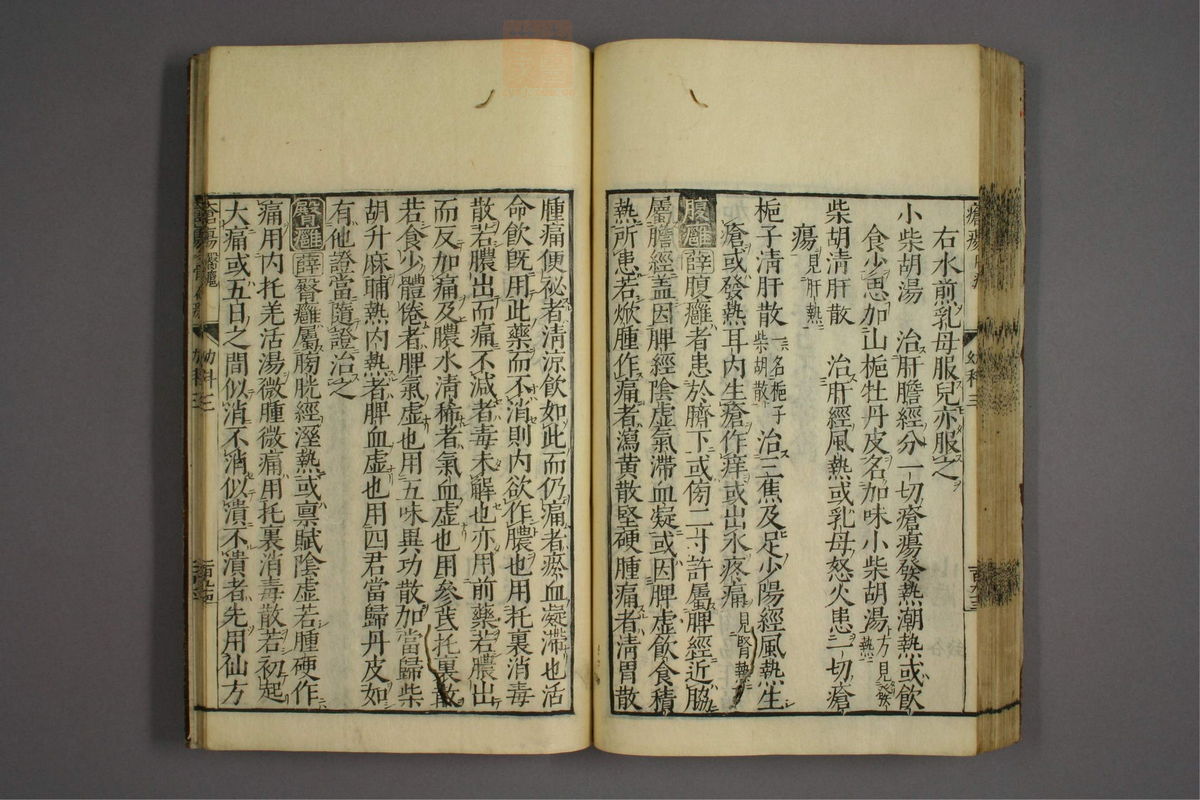 右水煎乳母服兒亦服之
小柴胡湯　治肝膽經分一切瘡瘍發熱潮熱或飲
食少思加山梔牡丹皮名加味小柴胡湯方見發熱
柴胡清肝散　治肝經風熱或乳母怒火患一切瘡
瘍見肝熱
梔子清肝散一名梔子柴胡散治三焦及足少陽經風熱生
瘡或發熱耳內生瘡作痒或出水疼痛見腎熱
腹癰薛腹癰者患於臍下或傍二寸許屬脾經近脇
屬膽經蓋因脾經陰虛氣滯血凝或因脾虛飲食積
熱所患若焮腫作痛者瀉黃散堅硬腫痛者清胃散
瘡瘍
幼科三
腫痛便祕者清涼飲如此而仍痛者瘀血凝滯也活
命飲既用此藥而不消則內欲作膿也用托裏消毒
散若膿出而痛不減者毒未解也亦用前藥若膿出
而反加痛及膿水清稀者氣血虛也用參芪托裏散
若食少體倦者脾氣虛也用五味異功散加當歸柴
胡升麻晡熱內熱者脾血虛也用四君當歸丹皮如
有他證當隨證治之
臀癰薛臀癰屬膀胱經溼熱或稟賦陰虛若腫硬作
痛用內托羌活湯微腫微痛用托裏消毒散若初起
大痛或五日之間似消不消似潰不潰者先用仙方
瘡瘍
幼科三